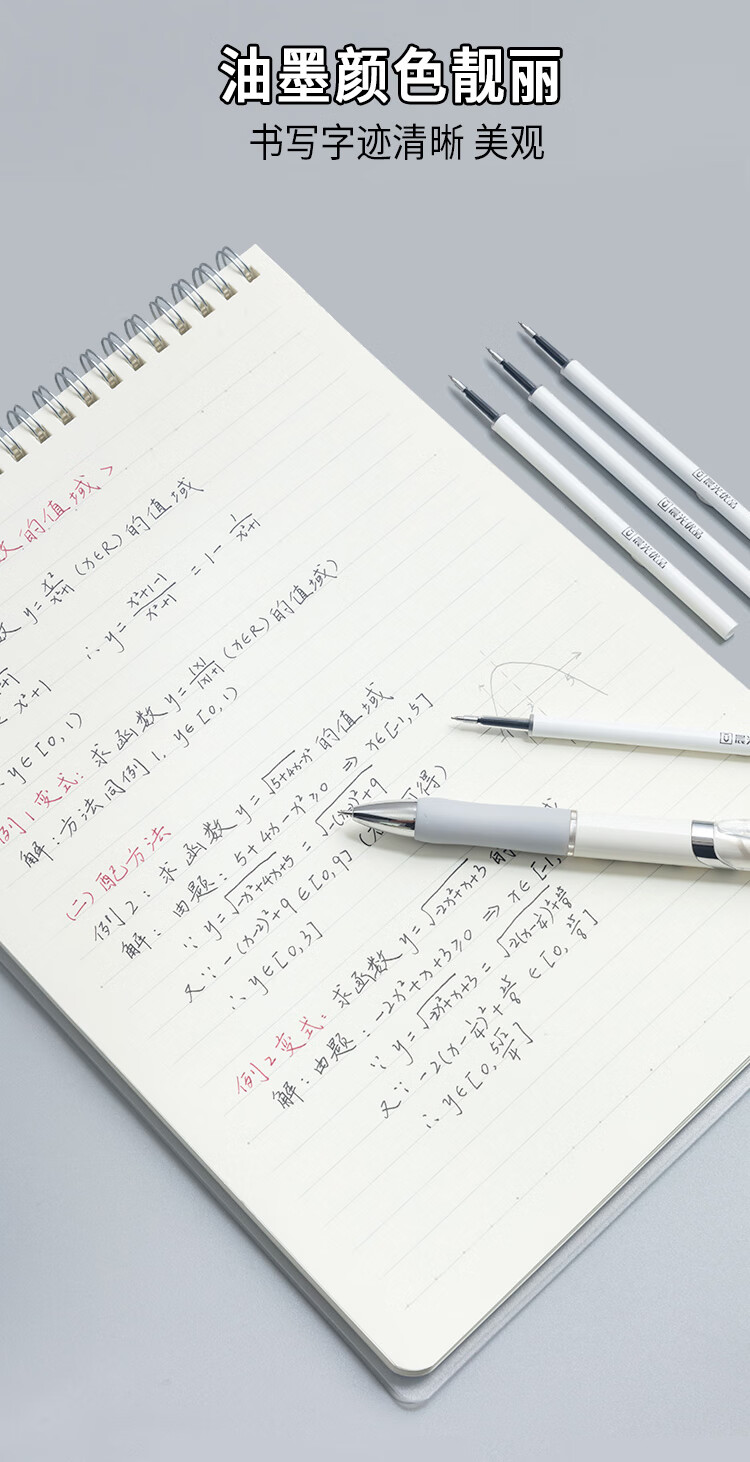 油墨颜色靓丽
书写字迹清晰 美观
晨光优品
晨光优品
晨光优品
的值域>
数 y=x²/x²+1 (x∈R) 的值域
∴y=x²+1-1/x²+1 = 1-1/x²+1
x²+1
y∈[0,1)
例1变式: 求函数 y=|x|/|x|+1 (x∈R) 的值域)
解: 方法同例1. y∈[0,1)
(二) 配方法
例2: 求函数 y=√5+4x-x² 的值域
解: 由题: 5+4x-x²≥0 ⇒ x∈[-1,5]
∵y=√-x²+4x+5 = √-(x-2)²+9
又∵-(x-2)²+9∈[0,9] 得)
∴y∈[0,3]
例2变式: 求函数 y=√-2x²+x+3 的
解: 由题: -2x²+x+3≥0 ⇒ x∈[-1,
∵y=√-2x²+x+3 = √-2(x-1/4)²+25/8
又∵-2(x-1/4)²+25/8∈[0,25/8]
∴y∈[0,5√2/4]